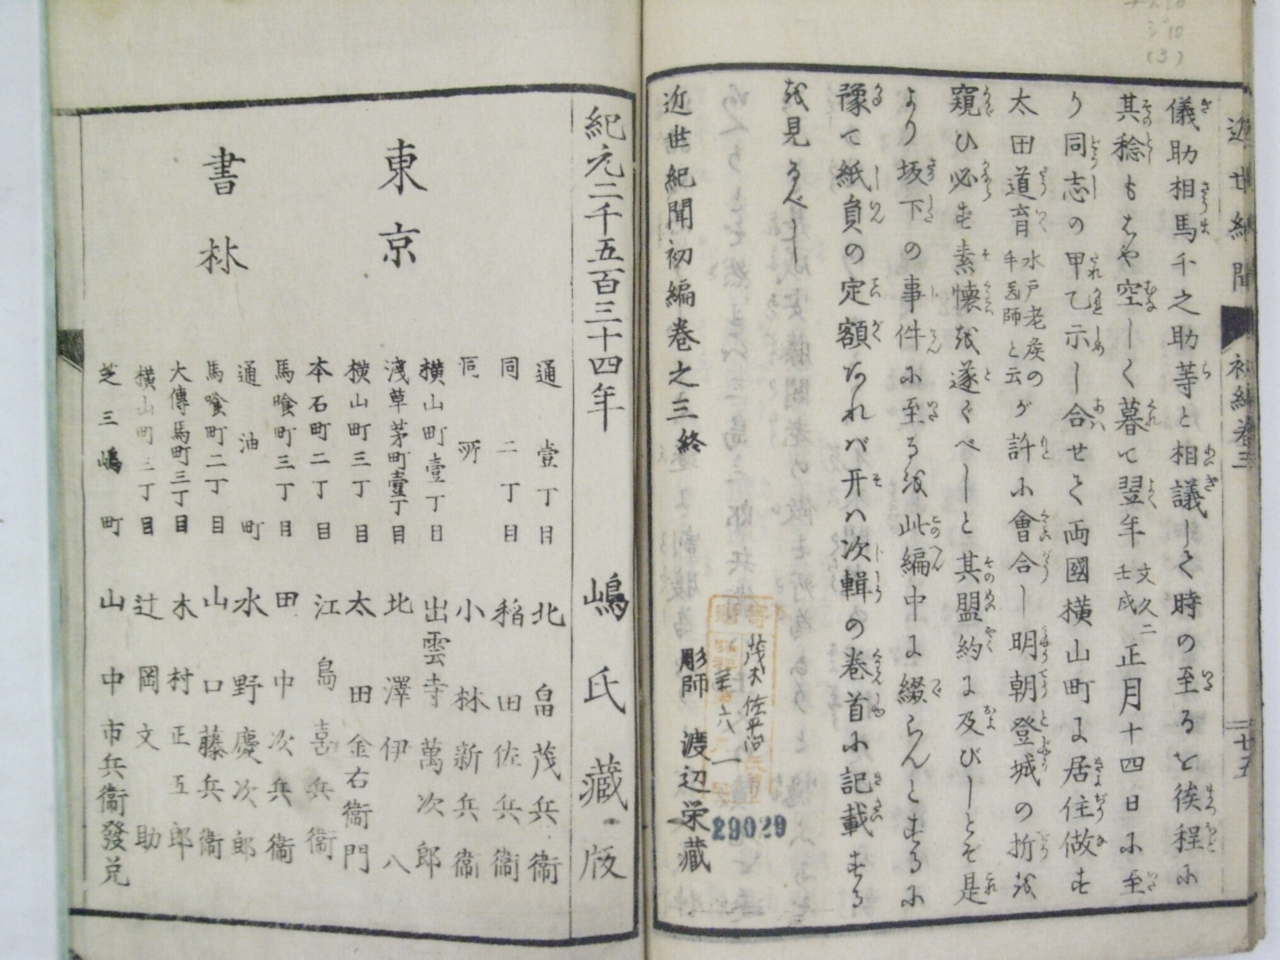 近世紀聞 初編巻三 廿五
儀助相馬千之助等と相議しく時の至るを俟程に
其稔もはや空しく暮て翌年 文久二壬戌 正月十四日に至
り同志の甲乙示し合せて両國横山町に居住做す
太田道育 水戸老侯の手医師と云 が許に會合し明朝登城の折を
窺ひ必ず素懐を遂ぐべしと其盟約に及びしとぞ是
より坂下の事件に至るを此編中に綴らんとするに
豫て紙員の定額あれバ开ハ次輯の巻首に記載する
を見るべし
近世紀聞初編巻之三終
彫師 渡辺栄蔵
茂木佐平治
29029
紀元二千五百三十四年 嶋氏藏版
東京
書林
通壹丁目 北畠茂兵衞
同二丁目 稲田佐兵衞
同所 小林新兵衞
横山町壹丁目 出雲寺萬次郎
浅草茅町壹丁目 北澤伊八
横山町三丁目 太田金右衞門
本石町二丁目 江島喜兵衞
馬喰町三丁目 田中次兵衞
通油町 水野慶次郎
馬喰町二丁目 山口藤兵衞
大傳馬町三丁目 木村正五郎
横山町三丁目 辻岡文助
芝三嶋町 山中市兵衞發兌